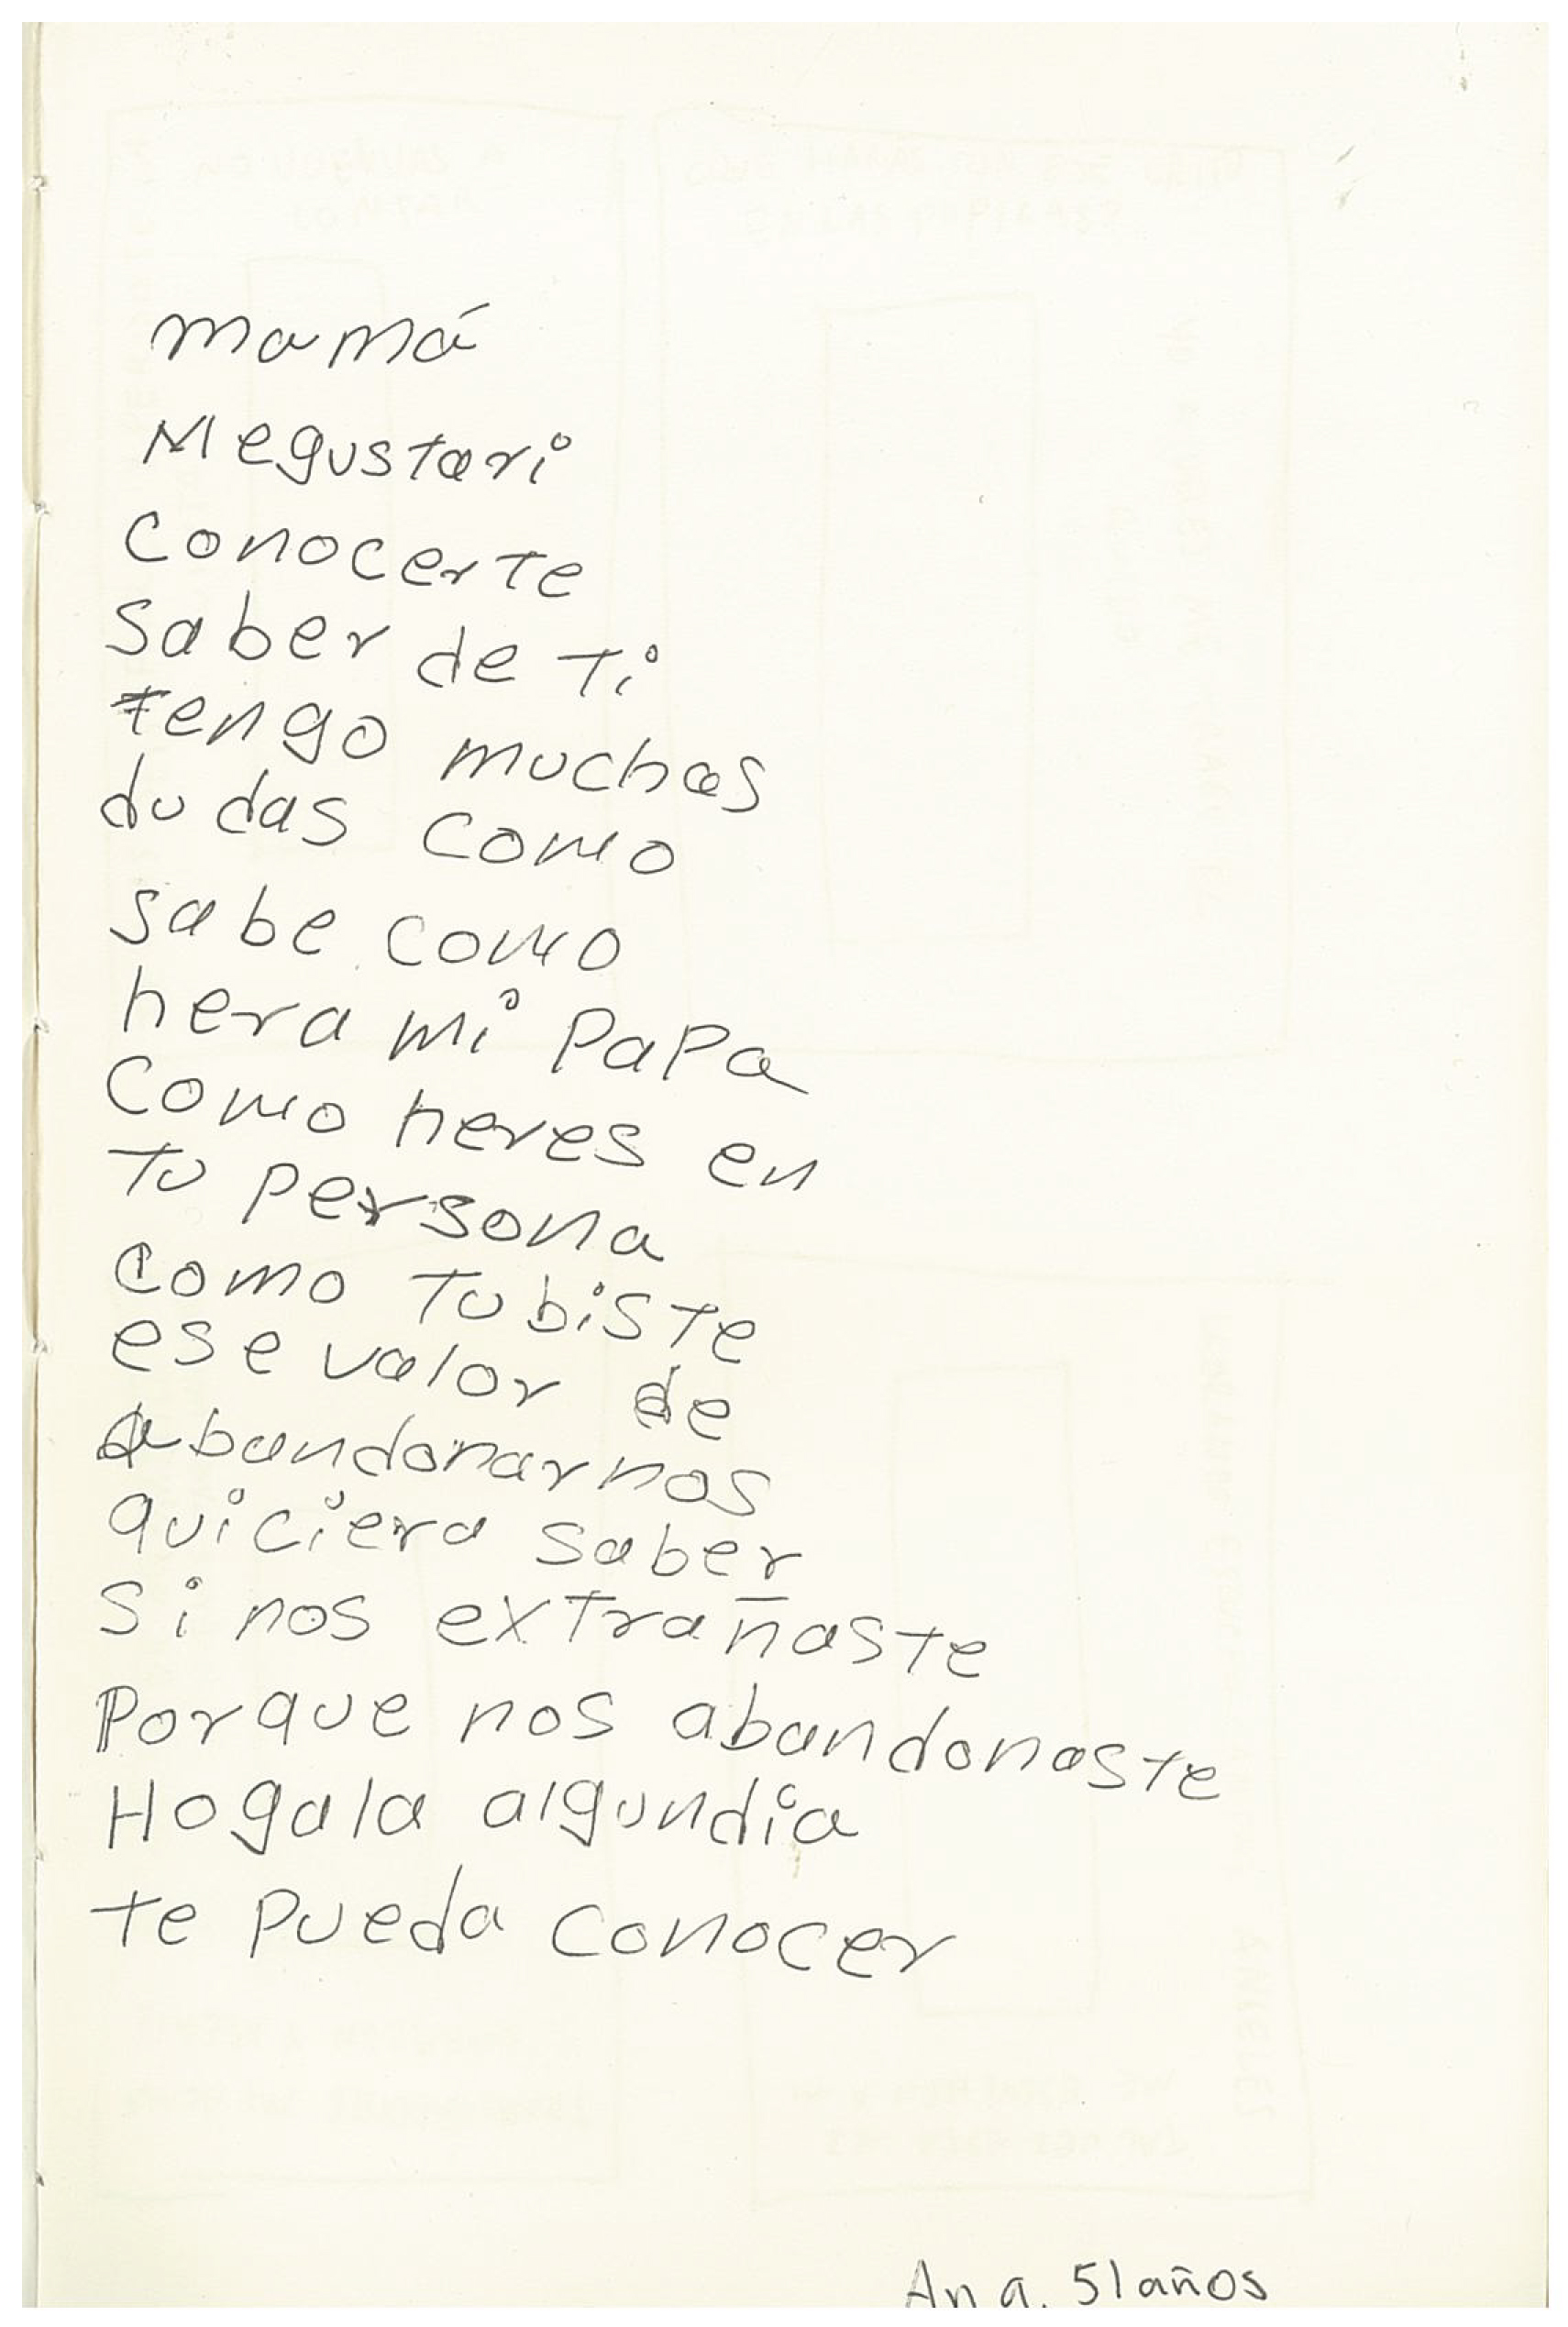 mamá
Megustari
Conocerte
Saber de ti
tengo muchas
dudas como
sabe como
hera mi PaPa
Como heres en
Tu persona
Como Tubiste
ese valor de
abandonarnos
quiciera saber
Si nos extrañaste
Porque nos abandonaste
Hogala algundia
te Pueda conocer
Ana. 51 años